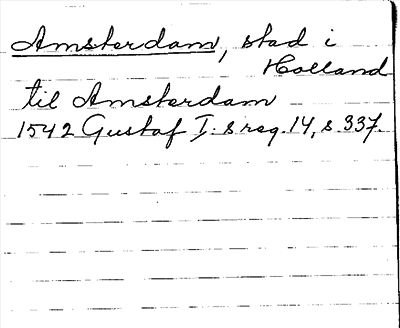 Amsterdam, stad i
Holland
til Amsterdam
1542 Gustaf I:s reg. 14, s. 337.